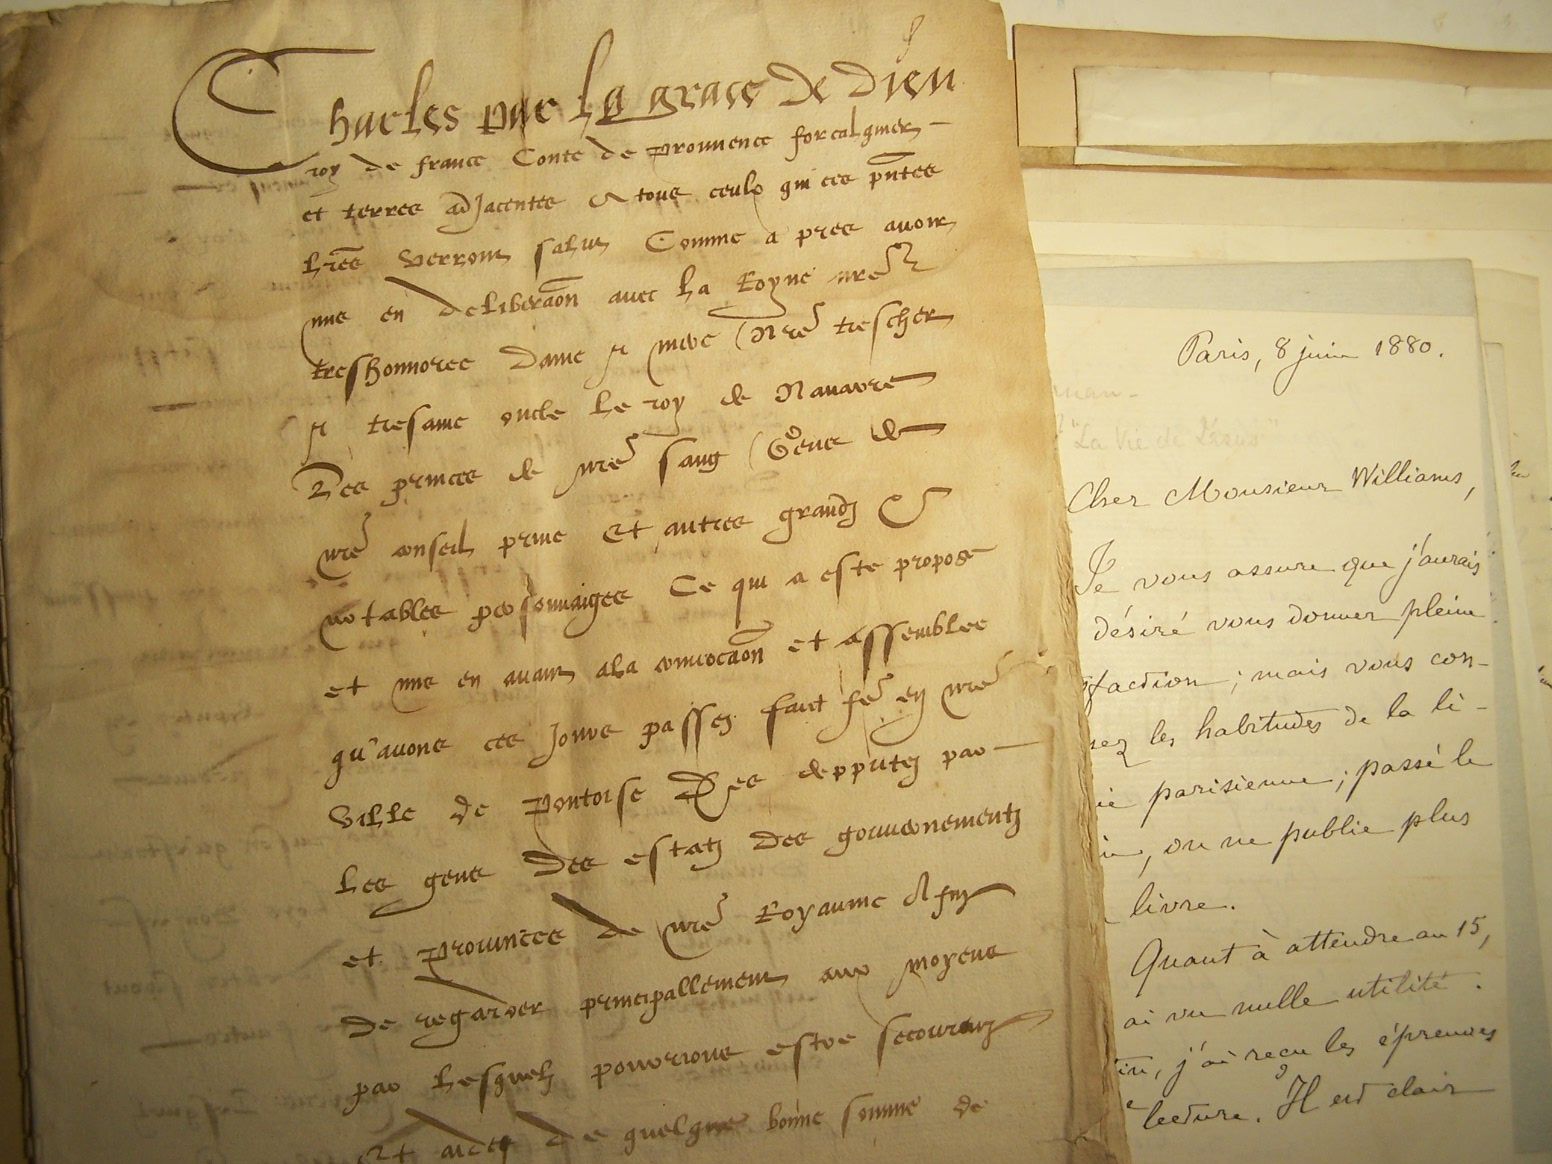 Charles par la grace de dieu
roy de france Conte de prouvence forcalquier
et terres adjacentes A tous ceulx qui ces pntes
lres verront salut Comme apres avoir
mis en deliberaon avec la Royne nre
treshonnoree dame et mere Nre trescher
et tresame oncle le roy de Navarre
Les princes de nre sang Gens de
nre conseil prive et autres grandz &
notables personnaiges Ce qui a este propose
et mis en avant a la convocaon et assemblee
qu'avons ces jours passez faict fe en nre
ville de pontoise Des depputez par
les gens des estatz des gouvernementz
et provinces de nre Royaume A fin
de regarder principallement aux moyens
par lesquelz pourrions estre secouruz
et aidez de quelque bonne somme de
Paris, 8 juin 1880.
"La Vie de Jésus"
Cher Monsieur Williams,
Je vous assure que j'aurais
désiré vous donner pleine
faction ; mais vous con-
sez les habitudes de la li-
ie parisienne ; passé le
, on ne publie plus
livre.
Quant à attendre au 15,
ai vu nulle utilité.
, j'ai reçu les épreuves
lecture. Il est clair